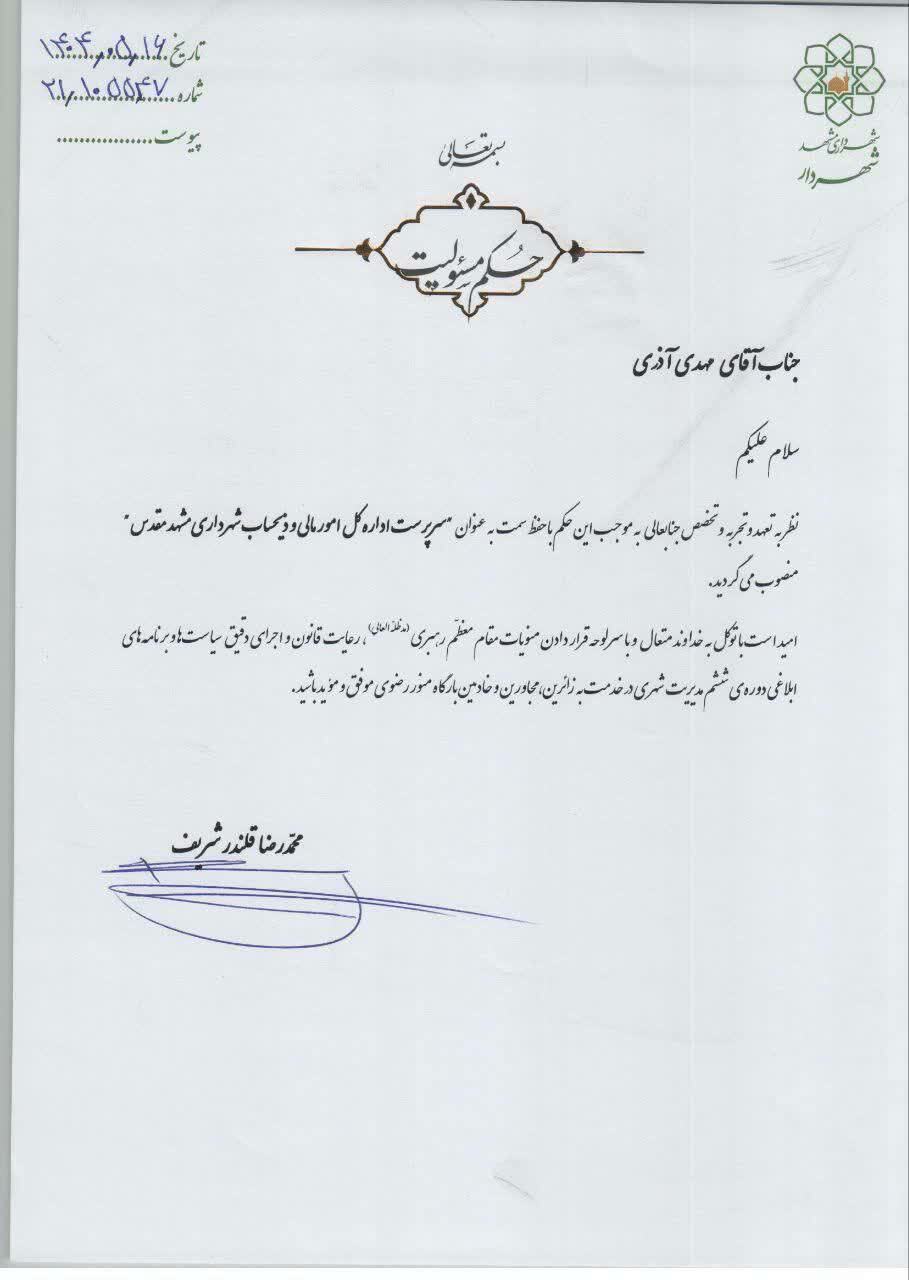 تاریخ ۱۴۰۴٫۰۵٫۱۶
شماره ۲۱٫۱۰۵۵۴۷
پیوست
شهرداری مشهد
شهردار
بسمه تعالی
حکم مسئولیت
جناب آقای مهدی آذری
سلام علیکم
نظر به تعهد و تجربه و تخصص جنابعالی به موجب این حکم با حفظ سمت به عنوان "سرپرست اداره کل امور مالی و ذیحساب شهرداری مشهد مقدس"
منصوب می گردید.
امید است با توکل به خداوند متعال و با سرلوحه قرار دادن منویات مقام معظّم رهبری (مدظلّه العالی)، رعایت قانون و اجرای دقیق سیاست‌ها و برنامه های
ابلاغی دوره‌ی ششم مدیریت شهری در خدمت به زائرین، مجاورین و خادمین بارگاه منور رضوی موفق و مؤید باشید.
محمّدرضا قلندر شریف